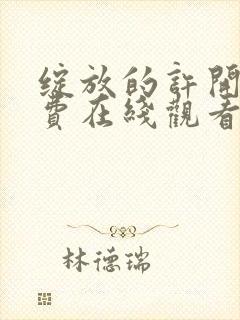 綻放的許開
費在綫觀看
林德瑞